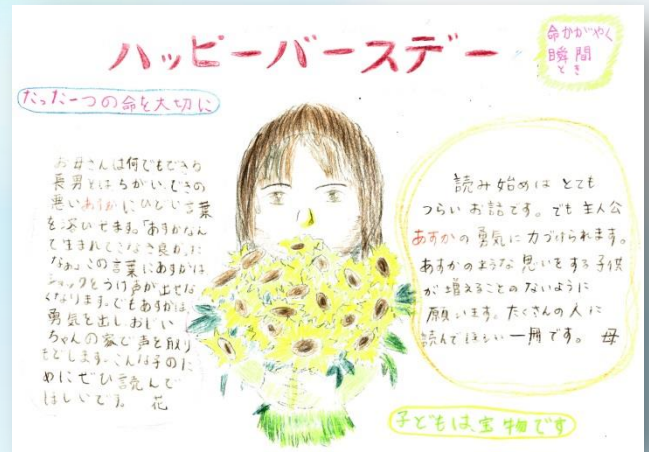 ハッピーバースデー
命かがやく
瞬間
とき
たった一つの命を大切に
お母さんは何でもできる
長男とはちがい、できの
悪いあすかにひどい言葉
を浴びせます。「あすかなん
て生まれてこなきゃ良かった
なぁ。」この言葉にあすかは
ショックをうけ声が出せな
くなります。でもあすかは、
勇気を出し、おじい
ちゃんの家で声を取り
もどします。こんな子のた
めにぜひ読んで
ほしいです。 花
読み始めは とても
つらい お話です。でも 主人公
あすかの 勇気に 力づけられます。
あすかのような 思いを する 子供
が 増えることの ないように
願います。たくさんの 人に
読んでほしい 一冊です。 母
子どもは宝物です